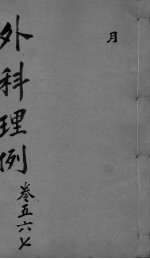 月
外科理例
卷五六七